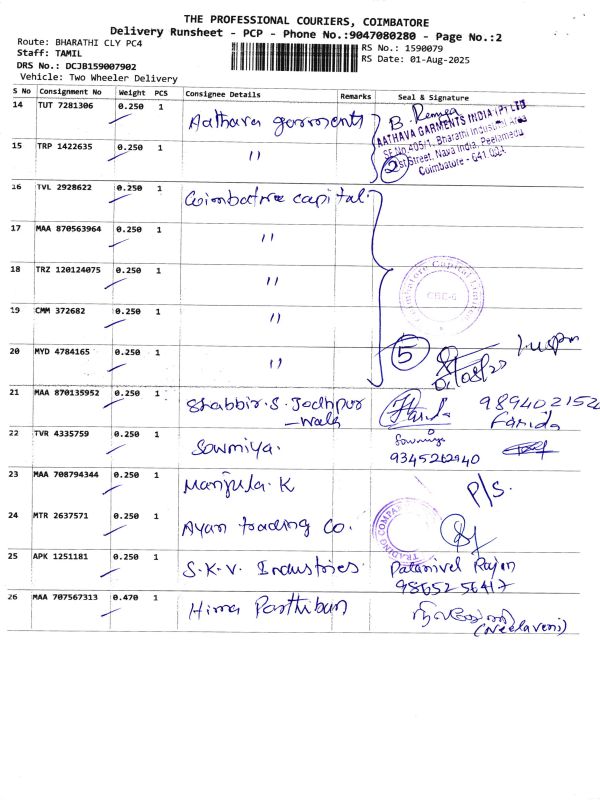 THE PROFESSIONAL COURIERS, COIMBATORE
Delivery Runsheet - PCP - Phone No.:9047080280 - Page No.:2
Route: BHARATHI CLY PC4
Staff: TAMIL
DRS No.: DCJB159007902
Vehicle: Two Wheeler Delivery
RS No.: 1590079
RS Date: 01-Aug-2025
S No Consignment No Weight PCS Consignee Details Remarks Seal & Signature
14 TUT 7281306 0.250 1 Aathava garments B. Remya
AATHAVA GARMENTS INDIA (P) LTD
SF No 405/1, Bharathi Industrial Area
1st Street, Nava India, Peelamedu
Coimbatore - 641 004
15 TRP 1422635 0.250 1 " 2
16 TVL 2928622 0.250 1 Coimbatore capital.
17 MAA 870563964 0.250 1 "
18 TRZ 120124075 0.250 1 "
Coimbatore Capital Limited
CBE-6
19 CMM 372682 0.250 1 "
20 MYD 4784165 0.250 1 " 5
21 MAA 870135952 0.250 1 Shabbir.S. Jodhpur
-wala
Farida 9894021520
Farida
22 TVR 4335759 0.250 1 Sowmiya. Sowmiya
9345262940
23 MAA 708794344 0.250 1 Manjula. K P/S.
24 MTR 2637571 0.250 1 Ayan trading Co.
TRADING COMPANY
25 APK 1251181 0.250 1 S.K.V. Industries. Palanivel Rajan
98652 56417
26 MAA 707567313 0.470 1 Hima Parthiban
(Neelaveni)